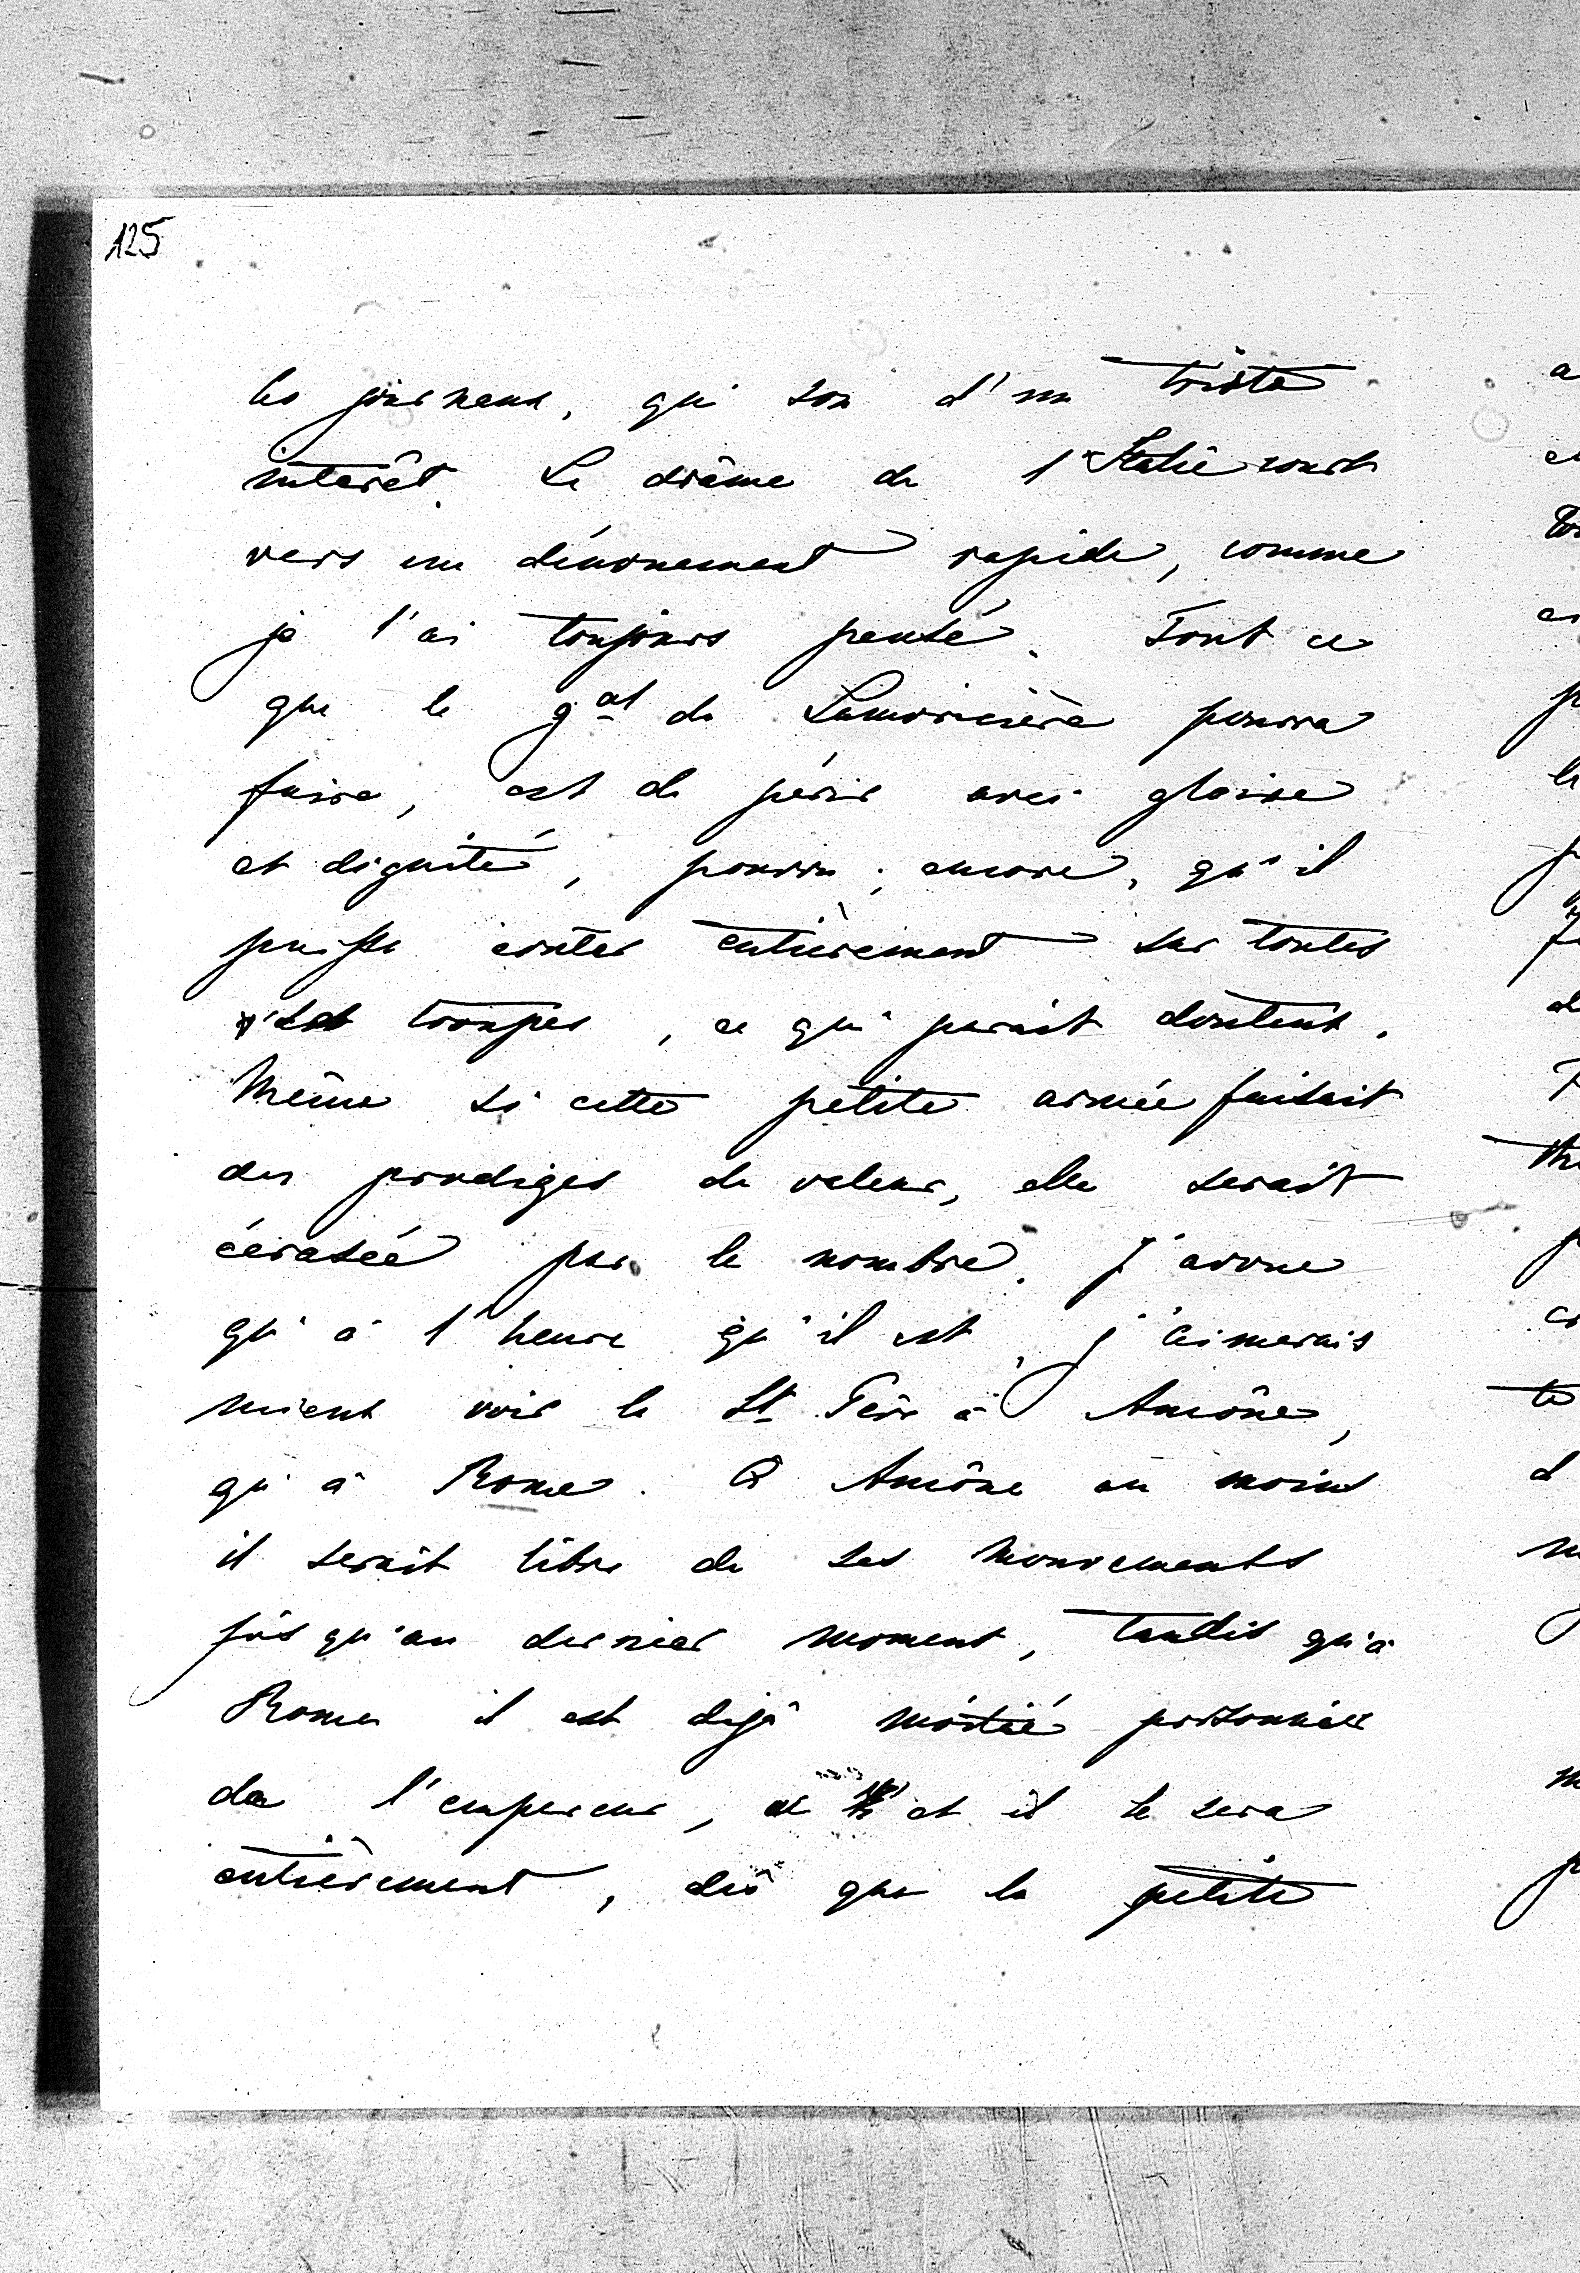 125
les journeaux, qui son d'un triste
interêt. Le drâme de l'Italie court
vers un dénouement rapide, comme
je l'ai toujours pensé. Tout ce
que le gal de Lamoricière pourra
faire, est de périr avec gloire
et dignité, pourvu, encore, qu'il
puisse conter entièrement sur toutes
ses troupes, ce qui parait douteux.
Même si cette petite armée faisait
des prodiges de valeur, elle serait
écrasée par le nombre. J'avoue
qu'à l'heure qu'il est, j'aimerais
mieux voir le St Père à Ancône,
qu'à Rome. A Ancône au moins
il serait libre de ses mouvements
jusqu'au dernier moment, tandis qu'à
Rome il est dejà moitié prisonnier
de l'empereur, et il le sera
entièrement, dès que la petite